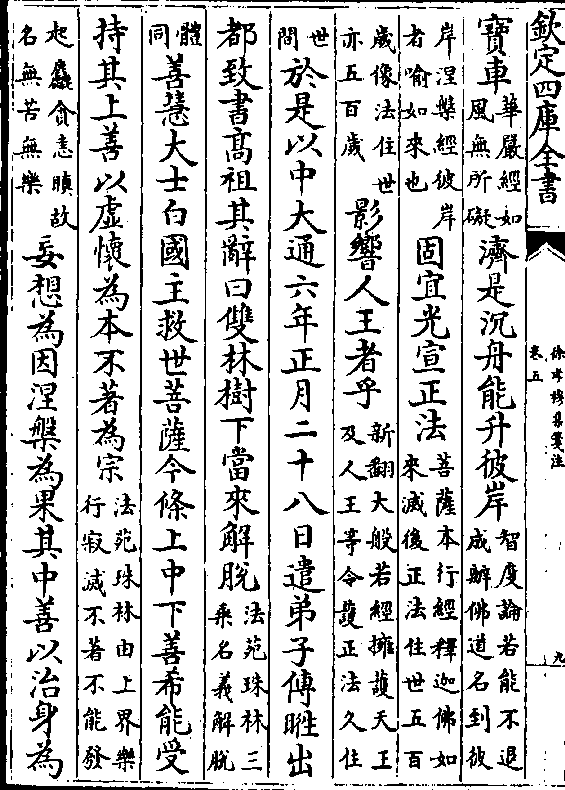 欽定四庫全書
寶車華嚴經如風無所礙濟是沉舟能升彼岸智度論若能不退成辦佛道名到彼
岸涅槃經彼岸者喻如來也固宜光宣正法菩薩本行經釋迦佛如來滅後正法住世五百
歲像法住世亦五百歲影響人王者乎新翻大般若經擁護天王及人王等令護正法久住
世間於是以中大通六年正月二十八日遣弟子傅暀出
都致書髙祖其辭曰雙林樹下當來解脫法苑珠林三乘名義解脫
體同善慧大士白國主救世菩薩今條上中下善希能受
持其上善以虛懷為本不著為宗法苑珠林由上界樂行寂滅不著不能發
起麤貪恚瞋故名無苦無樂妄想為因涅槃為果其中善以治身為
徐孝穆集箋注
卷五
九